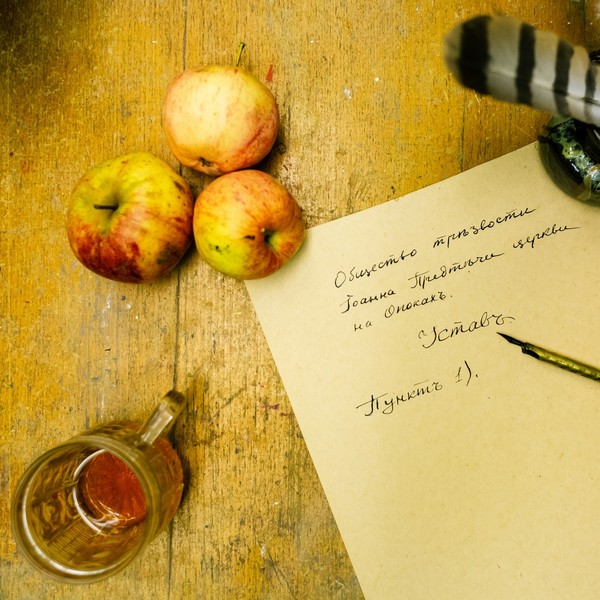 Общество трѣзвости
Iоанна Предтѣчи церкви
на Опокахъ.
Уставъ
Пунктъ 1).